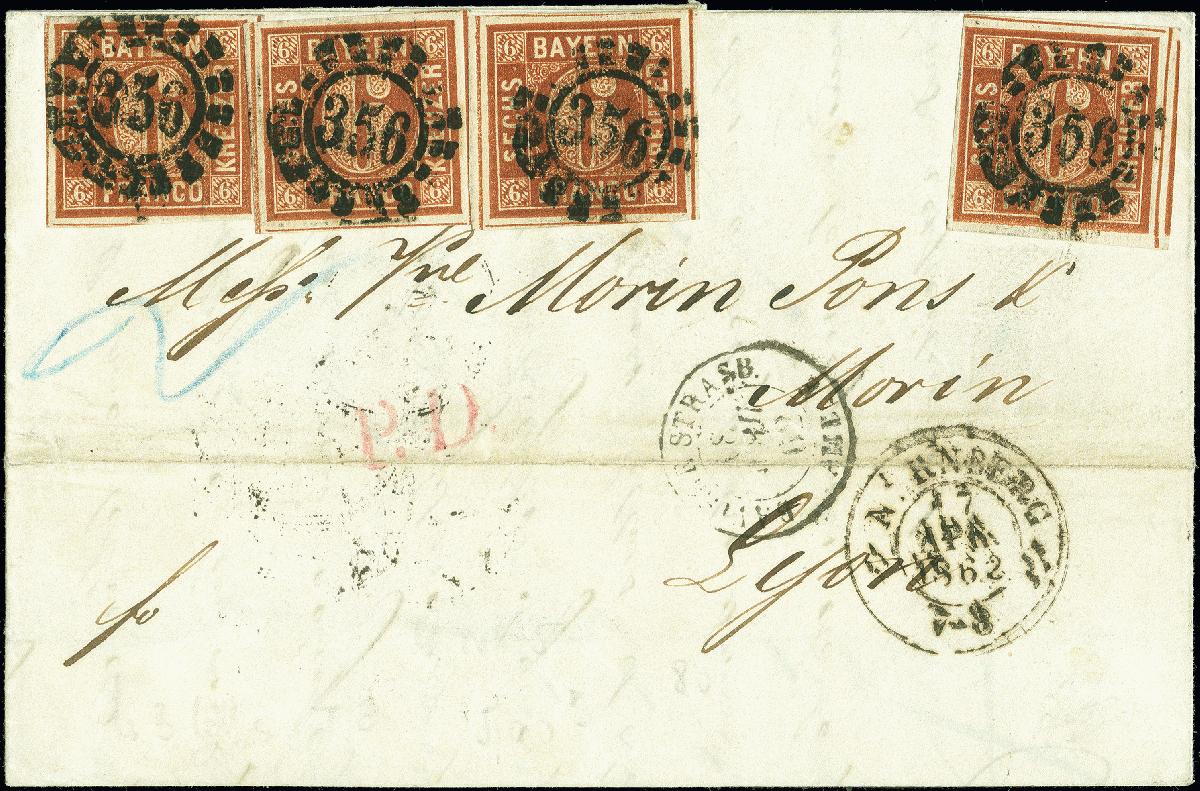 6 BAYERN
SECHS KREUZER
FRANCO 6
356
6 BAYERN 6
SECHS KREUZER
6 FRANCO 6
356
6 BAYERN 6
SECHS KREUZER
6 FRANCO 6
356
BAYERN 6
SECHS KREUZER
6 FRANCO 6
356
Mess. Vve Morin Pons &
Morin
Lyon
fo
P.D.
STRASB.
NÜRNBERG
17
APR.
1862
7-8